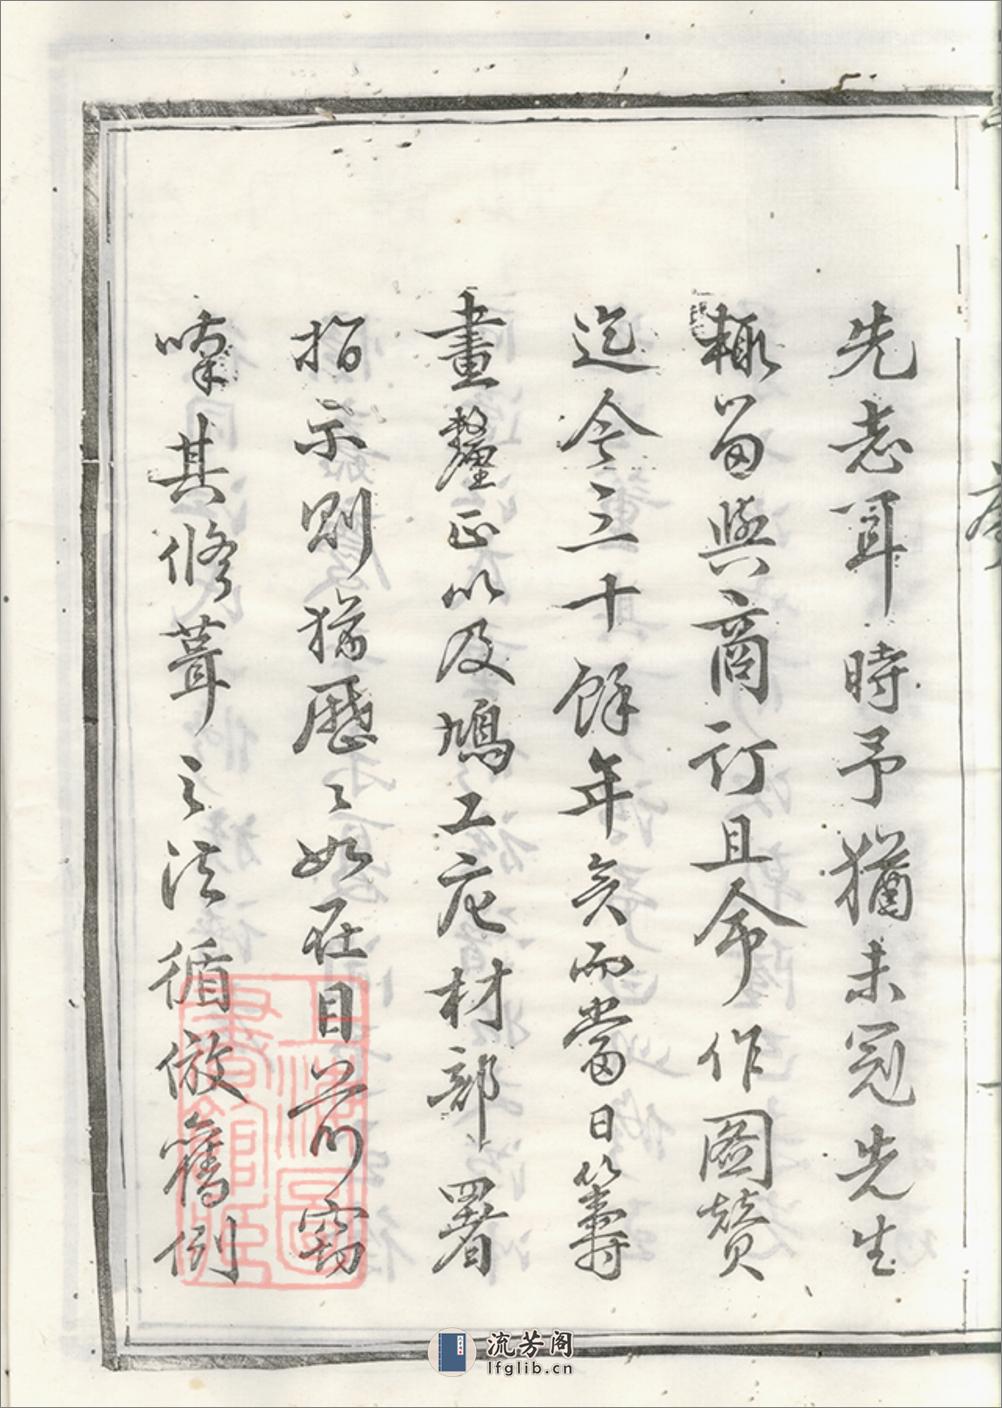 先志耳時予猶未冠先生
極留與商訂且命作圖贊
迄今三十餘年矣而當日籌
畫釐正以及鳩工庀材部署
指示則猶歷歷如在目前窃
嘆其修葺之法循倣舊例
上海圖書館藏
流芳阁
lfglib.cn